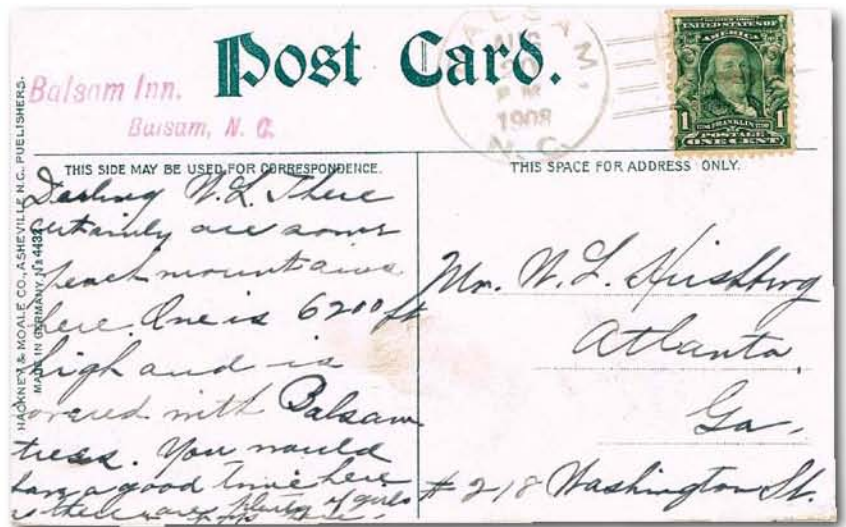 Post Card.
Balsam Inn.
Balsam, N. C.
BALSAM,
AUG
20
P M
1908
N. C.
UNITED STATES OF
AMERICA
1 FRANKLIN 1
POSTAGE
ONE CENT
HACKNEY & MOALE CO., ASHEVILLE N.C., PUBLISHERS.
MADE IN GERMANY. № 4432
THIS SIDE MAY BE USED FOR CORRESPONDENCE.
Darling W.L. There
certainly are some
peach mountains
here. One is 6200 ft
high and is
covered with Balsam
trees. You would
have a good time here
as there are plenty of girls
THIS SPACE FOR ADDRESS ONLY.
Mr. W. L. Hirshberg
Atlanta,
Ga.
# 218 Washington St.